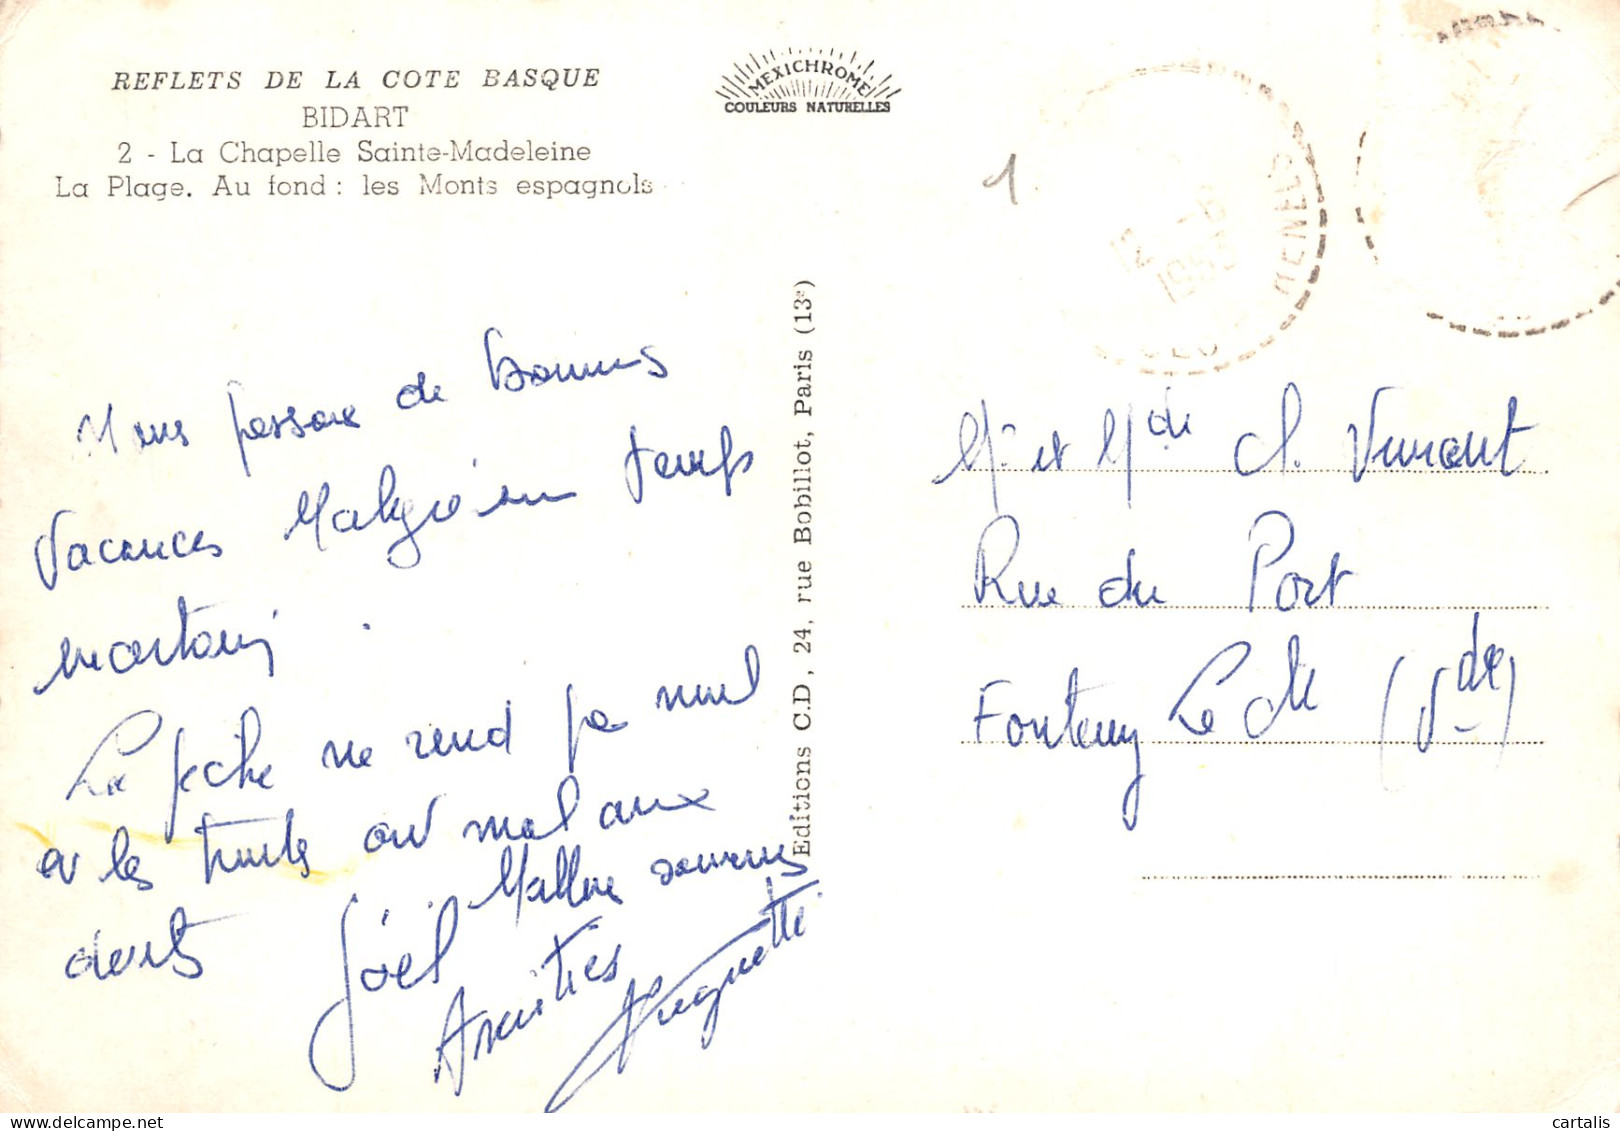 REFLETS DE LA COTE BASQUE
BIDART
2 - La Chapelle Sainte-Madeleine
La Plage. Au fond : les Monts espagnols
MEXICHROME
COULEURS NATURELLES
1
Editions C.D, 24, rue Bobillot, Paris (13e)
Nous passons de bonnes
vacances Malgré un temps
incertain.
La pêche ne rend pas mal
et les truites ont mal aux
dents
Joël
Amitiés
Huguette
Mr et Mde Vincent
Rue du Port
Fontenay Le Cte (Vdée)
cartalis